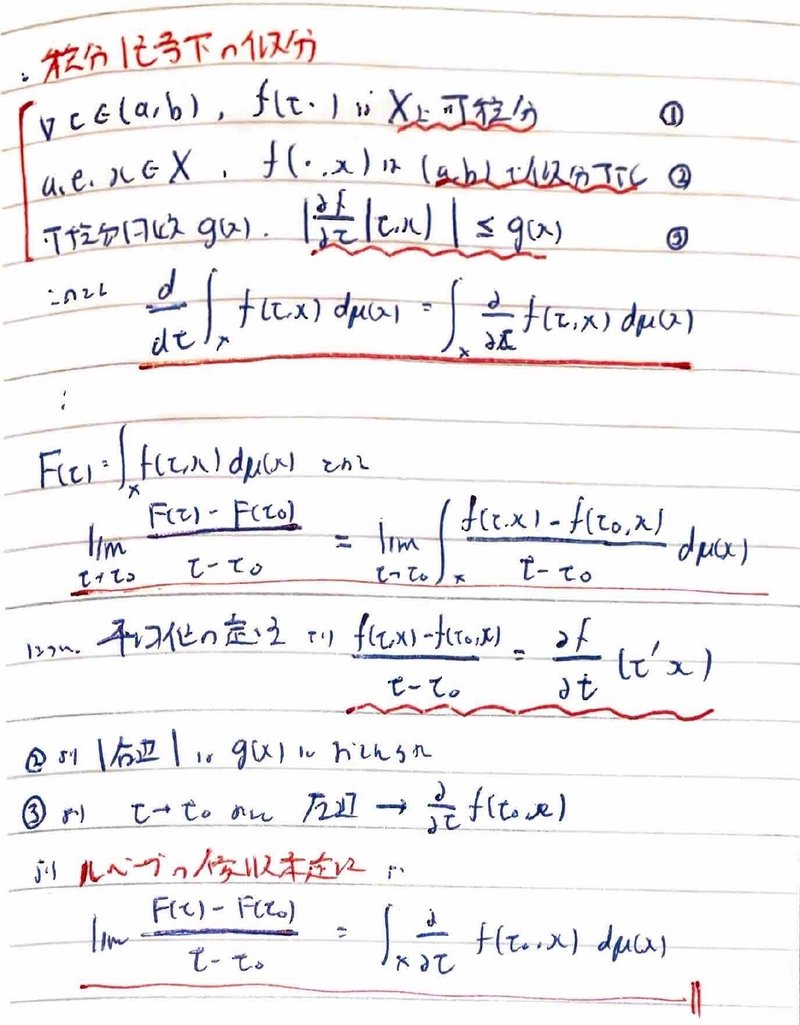 積分記号下の微分
∀τ∈(a,b), f(τ,·) は X上可積分 ①
a.e. x∈X, f(·,x) は (a,b)で微分可能 ②
可積分関数 g(x). |∂f/∂τ(τ,x)| ≤ g(x) ③
このとき d/dτ ∫_X f(τ,x) dμ(x) = ∫_X ∂/∂τ f(τ,x) dμ(x)
:
F(τ) = ∫_X f(τ,x) dμ(x) とおく
lim_{τ→τ₀} (F(τ) - F(τ₀))/(τ - τ₀) = lim_{τ→τ₀} ∫_X (f(τ,x) - f(τ₀,x))/(τ - τ₀) dμ(x)
について. 平均値の定理より (f(τ,x) - f(τ₀,x))/(τ - τ₀) = ∂f/∂t (τ' x)
② より |右辺| は g(x) に おさえられ
③ より τ→τ₀ のとき 左辺 → ∂/∂τ f(τ₀,x)
より ルベーグの優収束定理より
lim (F(τ) - F(τ₀))/(τ - τ₀) = ∫_X ∂/∂τ f(τ₀,x) dμ(x)